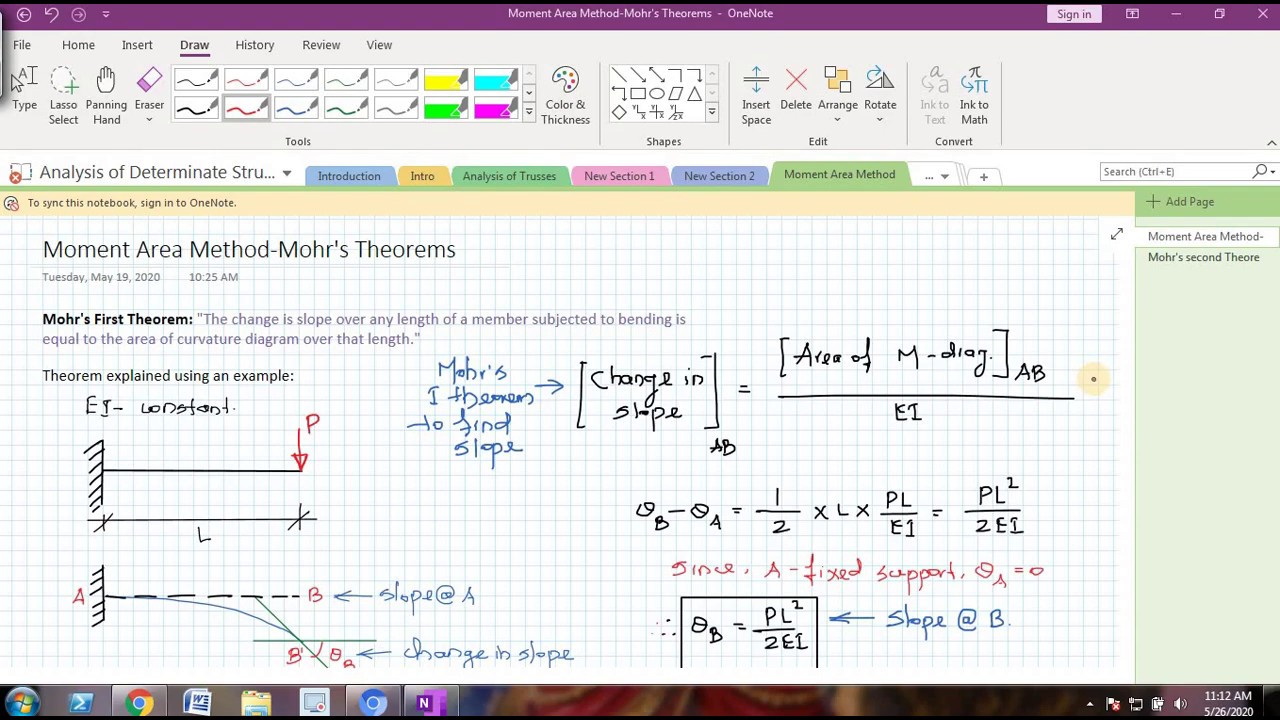 Moment Area Method-Mohr's Theorems - OneNote
Sign in
File Home Insert Draw History Review View
Type
Lasso Select
Panning Hand
Eraser
Color & Thickness
Insert Space
Delete
Arrange
Rotate
Ink to Text
Ink to Math
Tools
Shapes
Edit
Convert
Analysis of Determinate Stru...
Introduction
Intro
Analysis of Trusses
New Section 1
New Section 2
Moment Area Method
...
Search (Ctrl+E)
To sync this notebook, sign in to OneNote.
Add Page
Moment Area Method-
Mohr's second Theore
Moment Area Method-Mohr's Theorems
Tuesday, May 19, 2020 10:25 AM
Mohr's First Theorem: "The change is slope over any length of a member subjected to bending is
equal to the area of curvature diagram over that length."
Theorem explained using an example:
EI- constant.
P
L
A
B ← slope@ A
B' θB ← change in slope
Mohr's
I theorem →
→ to find
slope
[Change in slope]AB = [Area of M-diag.]AB / EI
θB - θA = 1/2 x L x PL/EI = PL²/2EI
Since, A-fixed support, θA = 0
∴ θB = PL²/2EI ← Slope @ B.
11:12 AM
5/26/2020